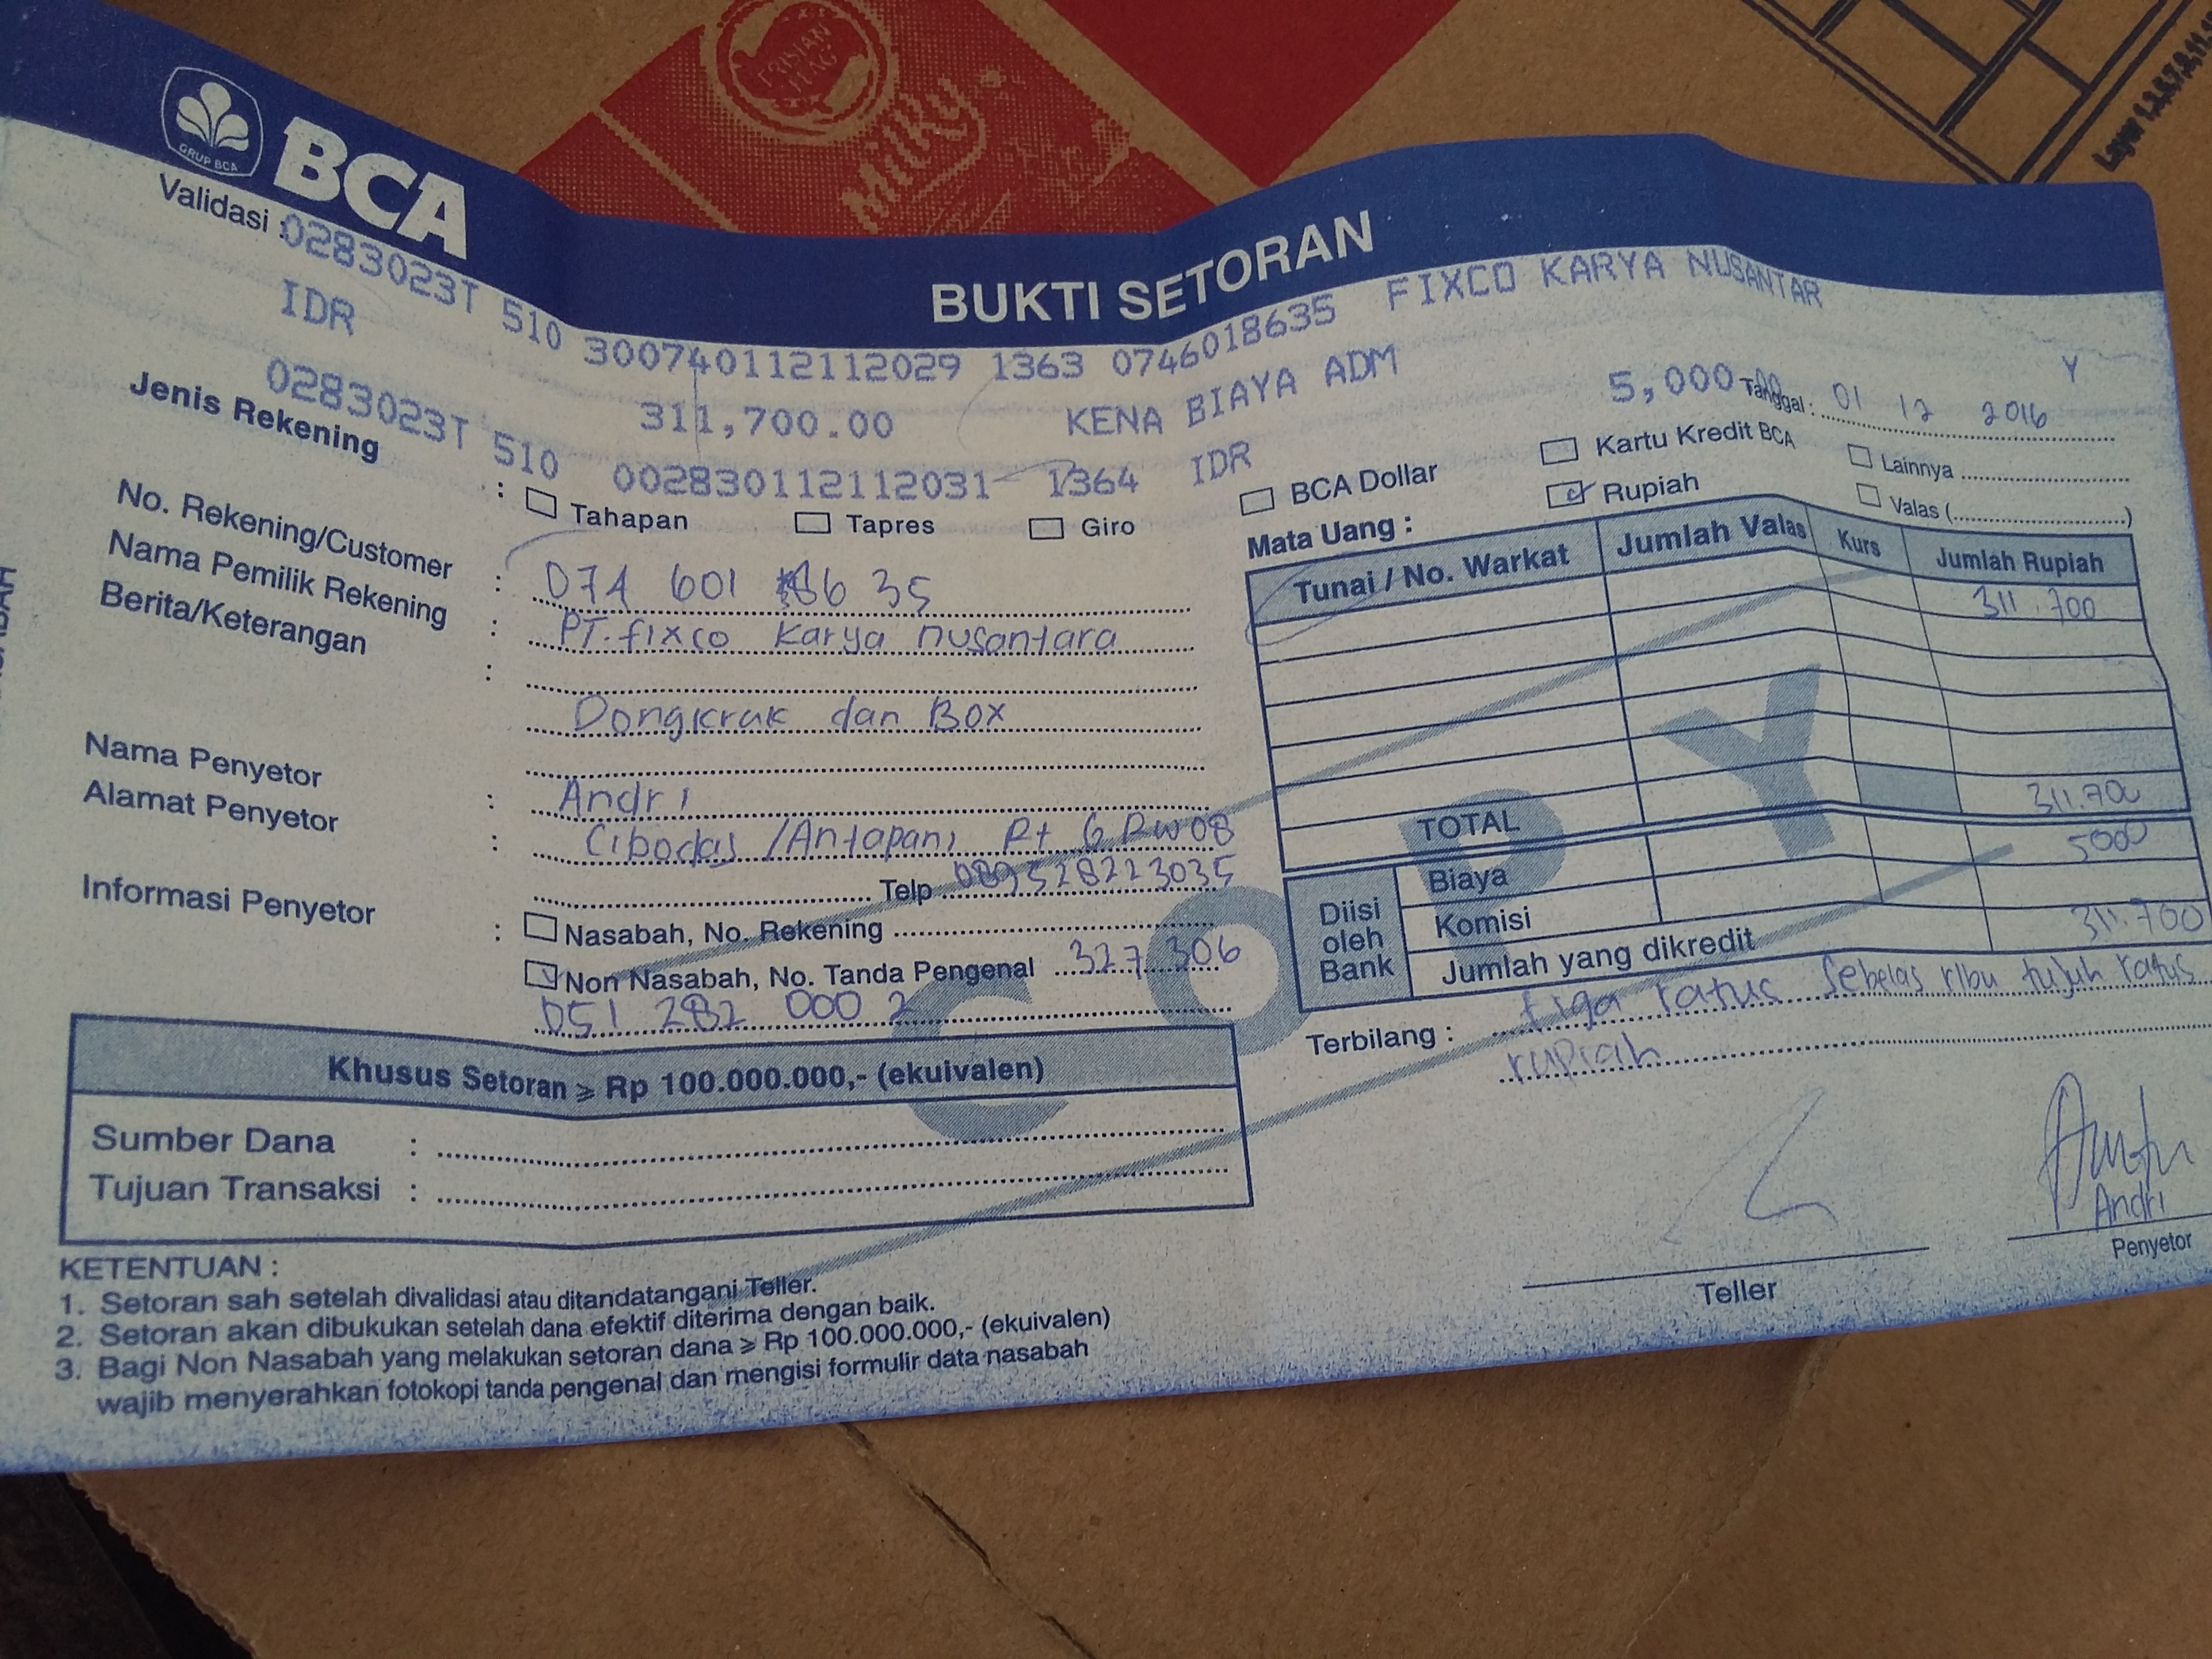 BCA
GRUP BCA
BUKTI SETORAN
Validasi 0283023T 510 3007401121112029 1363 0746018635 FIXCO KARYA NUSANTAR
IDR 311,700.00 KENA BIAYA ADM 5,000.00 Y
0283023T 510 0028301121112031 1364 IDR
Tanggal : 01 12 2016
Jenis Rekening : Tahapan Tapres Giro BCA Dollar Kartu Kredit BCA Lainnya
Mata Uang : Rupiah Valas (....)
No. Rekening/Customer : 074 601 8635
Nama Pemilik Rekening : PT. fixco karya nusantara
Berita/Keterangan :
Dongkrak dan Box
Nama Penyetor : Andri
Alamat Penyetor : Cibodas /Antapani Rt 6 Rw 08
Telp 089528223035
Informasi Penyetor : Nasabah, No. Rekening
Non Nasabah, No. Tanda Pengenal 327 306
051 282 000 2
Tunai / No. Warkat Jumlah Valas Kurs Jumlah Rupiah
311 700
TOTAL 311.700
Diisi oleh Bank
Biaya 5000
Komisi
Jumlah yang dikredit 311.700
Terbilang : tiga ratus sebelas ribu tujuh ratus
rupiah
COPY
Khusus Setoran ≥ Rp 100.000.000,- (ekuivalen)
Sumber Dana :
Tujuan Transaksi :
Teller
Andri
Penyetor
KETENTUAN :
1. Setoran sah setelah divalidasi atau ditandatangani Teller.
2. Setoran akan dibukukan setelah dana efektif diterima dengan baik.
3. Bagi Non Nasabah yang melakukan setoran dana ≥ Rp 100.000.000,- (ekuivalen)
wajib menyerahkan fotokopi tanda pengenal dan mengisi formulir data nasabah
FRISIAN FLAG